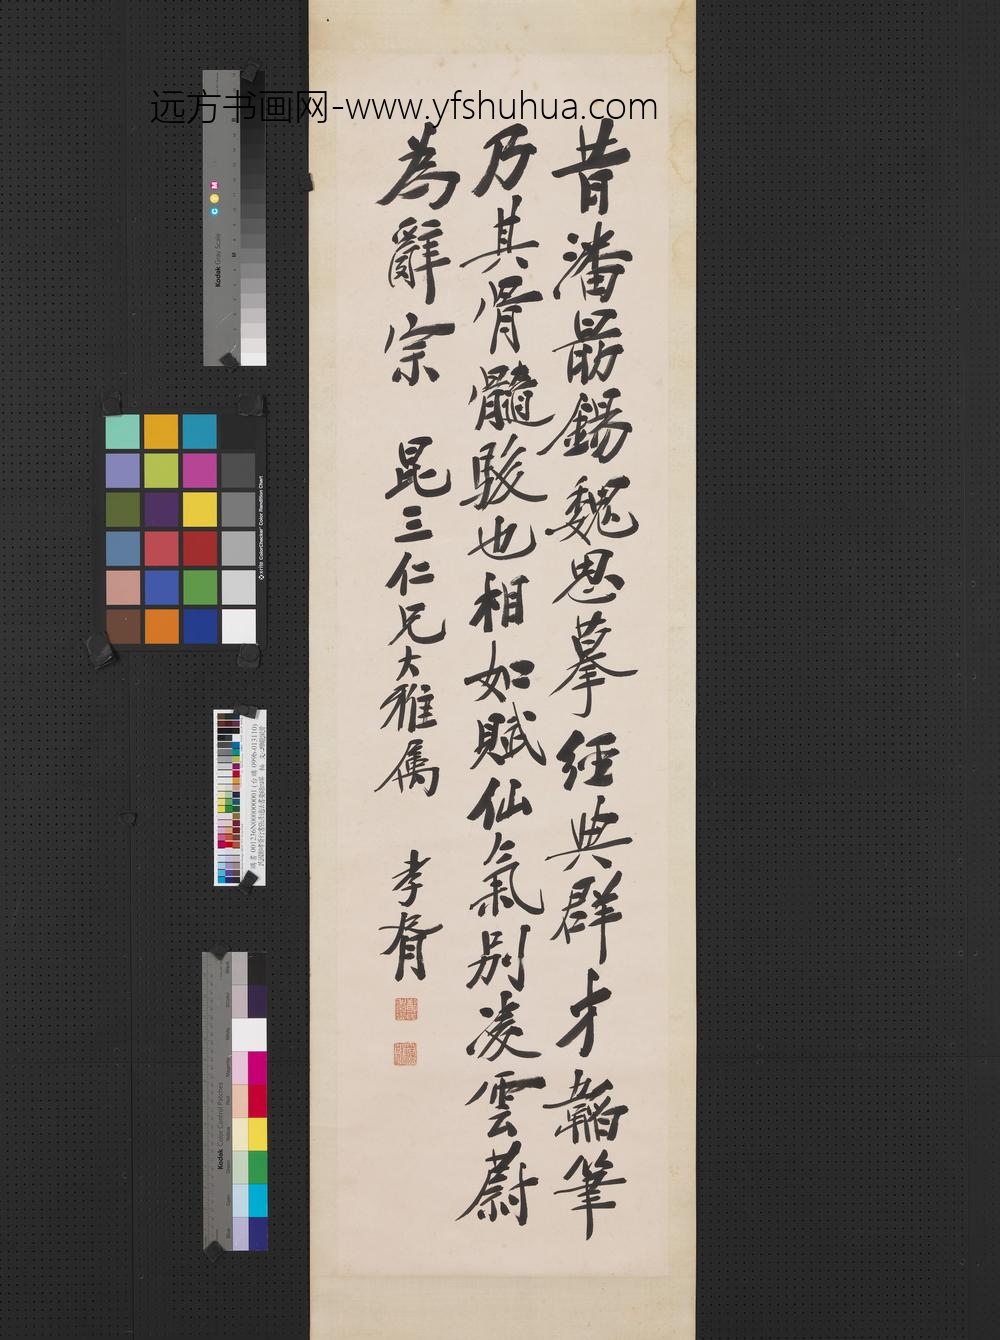 远方书画网-www.yfshuhua.com
昔潘勗錫魏思摹經典群才韜筆
乃其骨髓駿也相如賦仙氣別凌雲蔚
為辭宗 昆三仁兄大雅属 孝胥
Kodak Gray Scale
C Y M
x-rite ColorChecker Color Rendition Chart
Kodak Color Control Patches